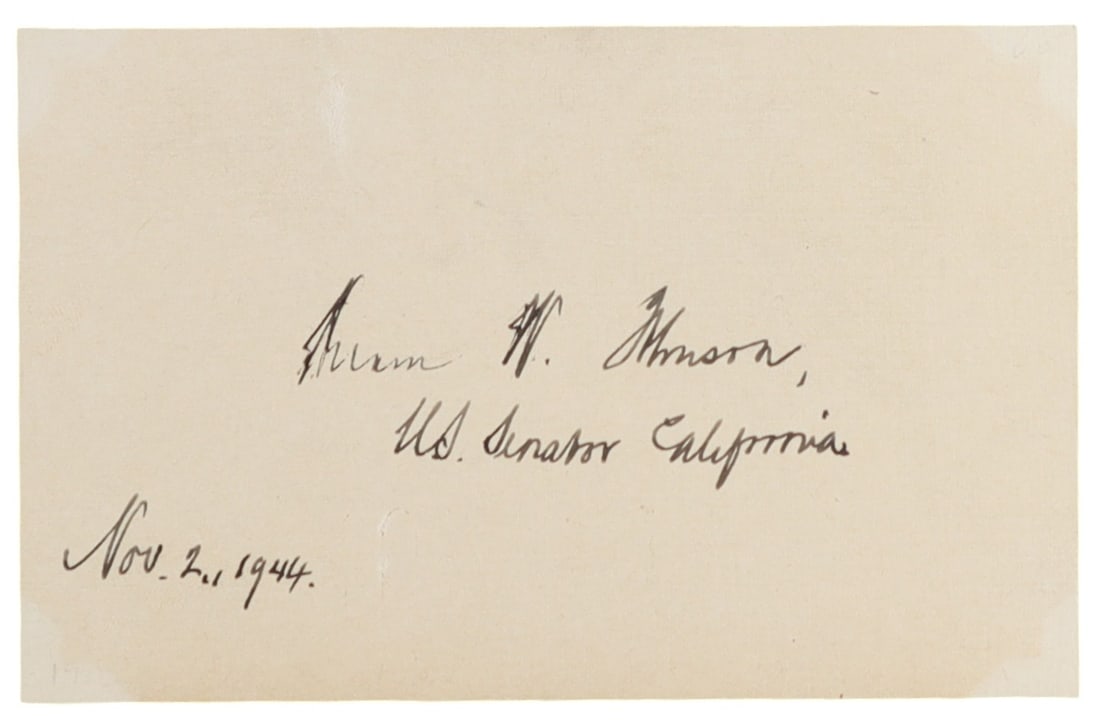 Hiram W. Johnson,
U.S. Senator California.
Nov. 2., 1944.